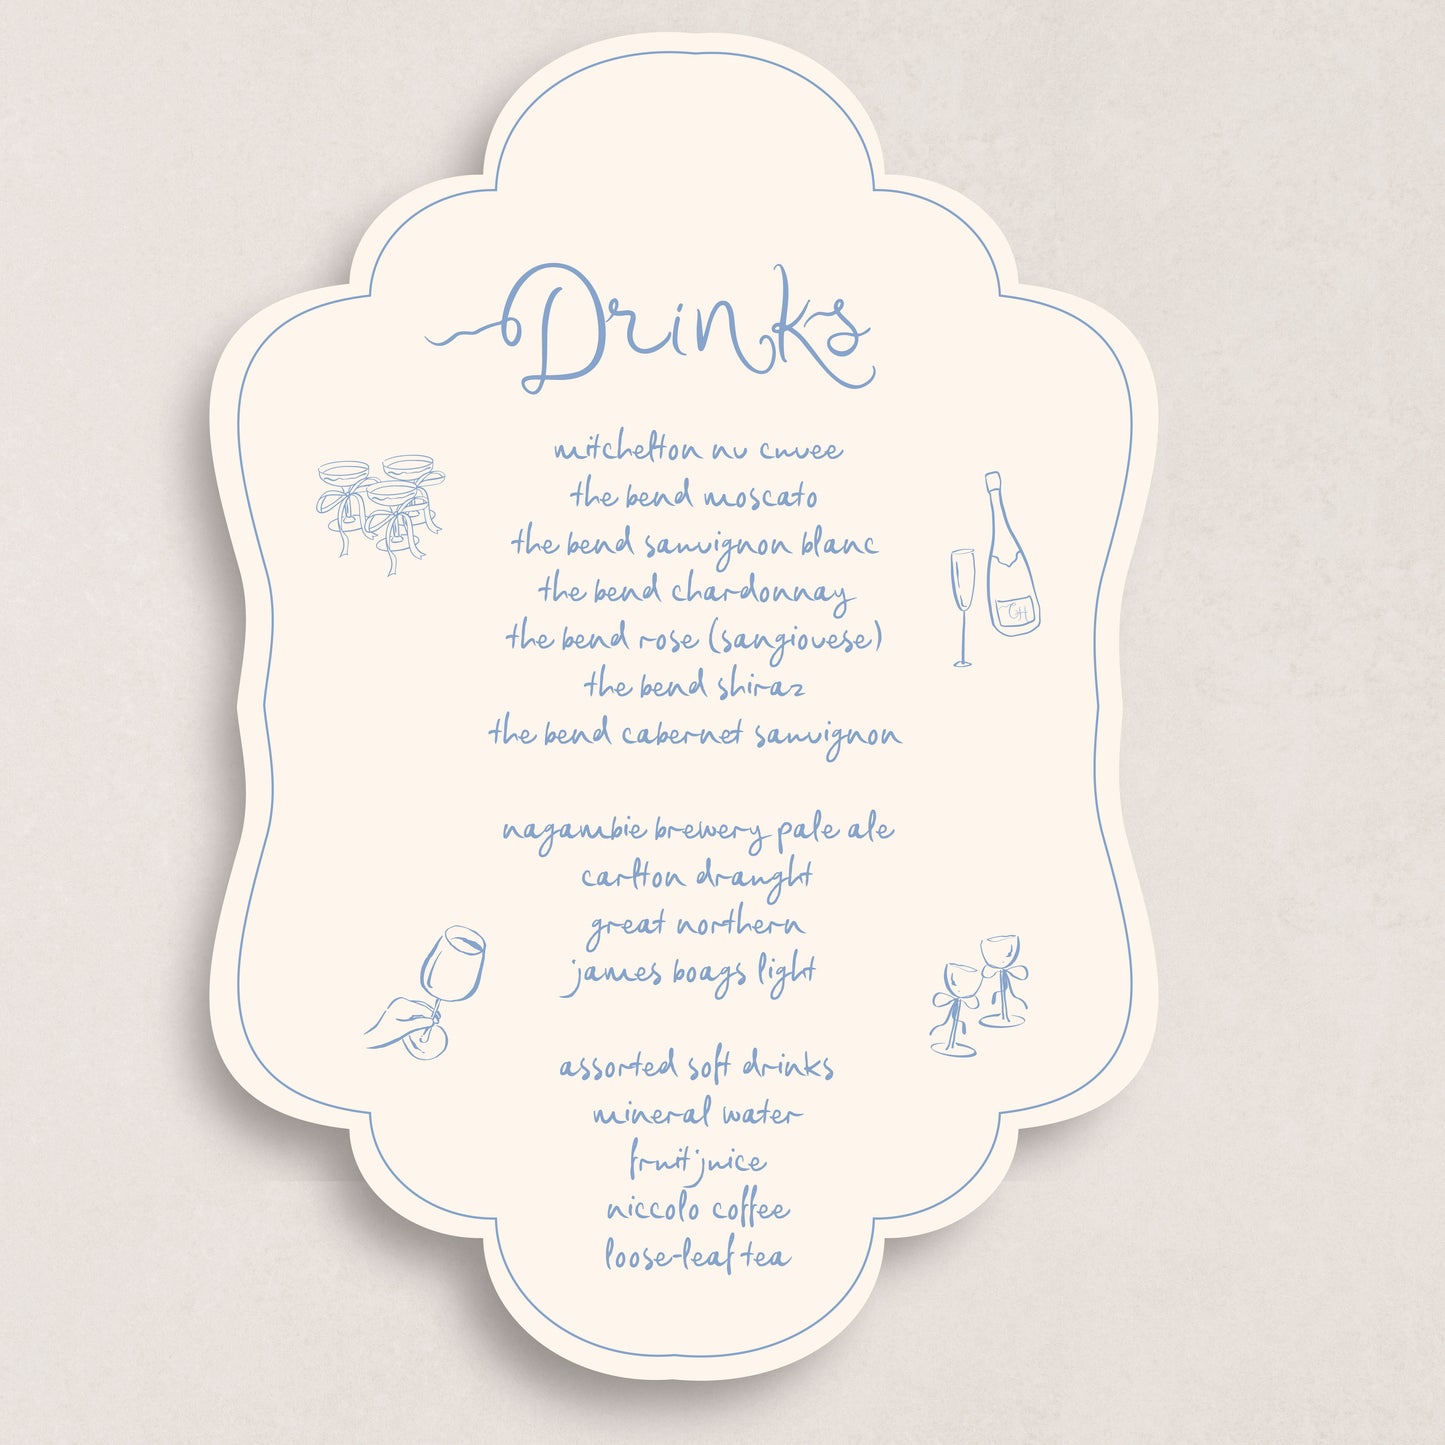 Drinks
mitchelton nv cuvee
the bend moscato
the bend sauvignon blanc
the bend chardonnay
GH
the bend rose (sangiovese)
the bend shiraz
the bend cabernet sauvignon
nagambie brewery pale ale
carlton draught
great northern
james boags light
assorted soft drinks
mineral water
fruit juice
niccolo coffee
loose-leaf tea